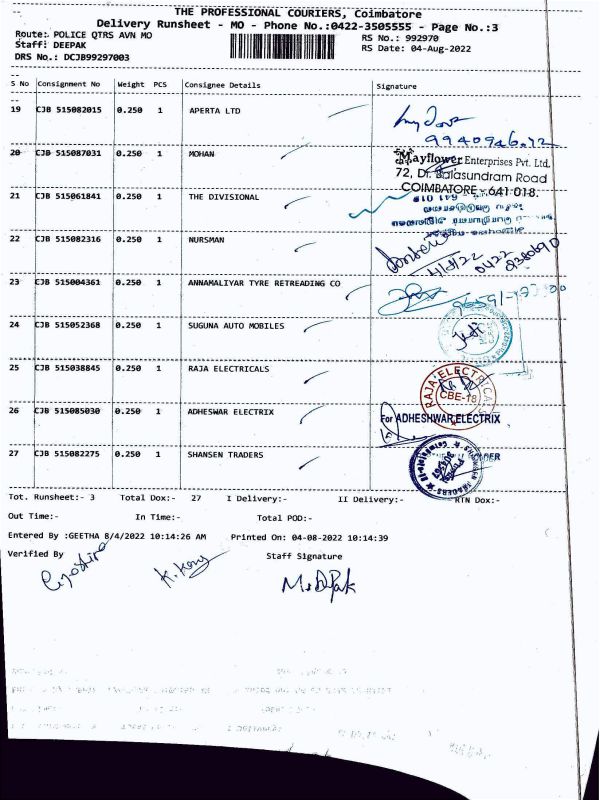 THE PROFESSIONAL COURIERS, Coimbatore
Delivery Runsheet - MO - Phone No.:0422-3505555 - Page No.:3
Route: POLICE QTRS AVN MO
RS No.: 992970
Staff: DEEPAK
RS Date: 04-Aug-2022
DRS No.: DCJB99297003
S No Consignment No Weight PCS Consignee Details Signature
19 CJB 515082015 0.250 1 APERTA LTD
20 CJB 515087031 0.250 1 MOHAN
Mayflower Enterprises Pvt. Ltd.
72, Dr. Balasundram Road
COIMBATORE - 641 018.
21 CJB 515061841 0.250 1 THE DIVISIONAL
22 CJB 515082316 0.250 1 NURSMAN
23 CJB 515004361 0.250 1 ANNAMALIYAR TYRE RETREADING CO
24 CJB 515052368 0.250 1 SUGUNA AUTO MOBILES
25 CJB 515038845 0.250 1 RAJA ELECTRICALS
RAJA ELECTRICALS
CBE-18
26 CJB 515085030 0.250 1 ADHESWAR ELECTRIX
For ADHESHWAR ELECTRIX
27 CJB 515082275 0.250 1 SHANSEN TRADERS
Tot. Runsheet:- 3 Total Dox:- 27 I Delivery:- II Delivery:- RTN Dox:-
Out Time:- In Time:- Total POD:-
Entered By :GEETHA 8/4/2022 10:14:26 AM Printed On: 04-08-2022 10:14:39
Verified By Staff Signature